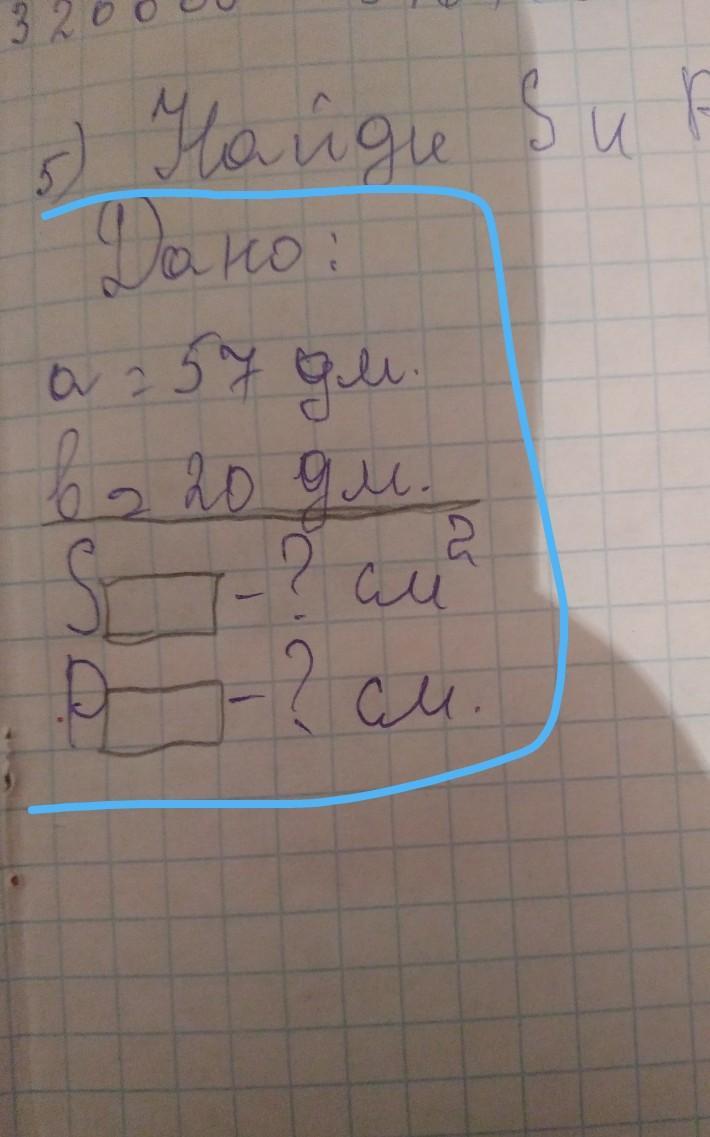 5) Найди S и P
Дано:
a = 57 дм.
b = 20 дм.
S - ? см²
P - ? см.